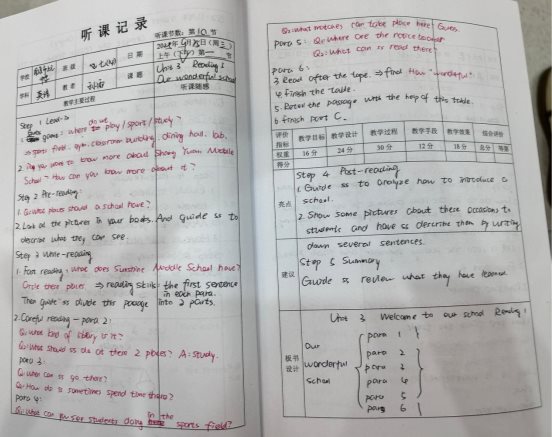 听课记录
听课节数: 第 10 节
学校
班级
日期
上午(下午)第一节
学科 英语
教者
课题 Unit 3 Reading 1
Our wonderful school
教学主要过程
听课随感
Step 1 Lead-in
1. Guess game: where do we play/sport/study?
⇒ sports field, gym, classroom building, dining hall, lab.
2. Do you want to know more about Shang Yuan Middle
School - How can you know more about it?
Step 2 Pre-reading:
1. Q: what places should a school have?
2. Look at the pictures in your books. And guide ss to
describe what they can see.
Step 3 While-reading
1. Fast reading: what does Sunshine Middle School have?
Circle these places ⇒ reading skills: the first sentence
in each para.
Then guide ss divide this passage into 2 parts.
2. Careful reading - para 2:
Q1: what kind of library is it?
Q2: what should ss do at these 2 places? A: study.
para 3:
Q: when can ss go there?
Q: How do ss sometimes spend time there?
para 4:
Q1: what can you see students doing in the sports field?
Q2: what matches can take place here? Guess.
para 5: Q1: where are the notice boards?
Q2: what can ss read there?
para 6:
3 Read after the tape. ⇒ find How "wonderful".
4 finish the table.
5. Retell the passage with the help of this table.
6 finish part C.
评价指标 教学目标 教学设计 教学过程 教学手段 教学效果 综合评价
权重 16 分 24 分 30 分 12 分 18 分 总分 等第
得分
亮点
Step 4 Post-reading
1. Guide ss to analyze how to introduce a
school.
2. Show some pictures about these occasions to
students and have ss describe them by writing
down several sentences.
建议
Step 5 Summary
Guide ss review what they have learned.
板书设计
Unit 3 Welcome to our school Reading 1
Our wonderful school
para 1
para 2
para 3
para 4
para 5
para 6